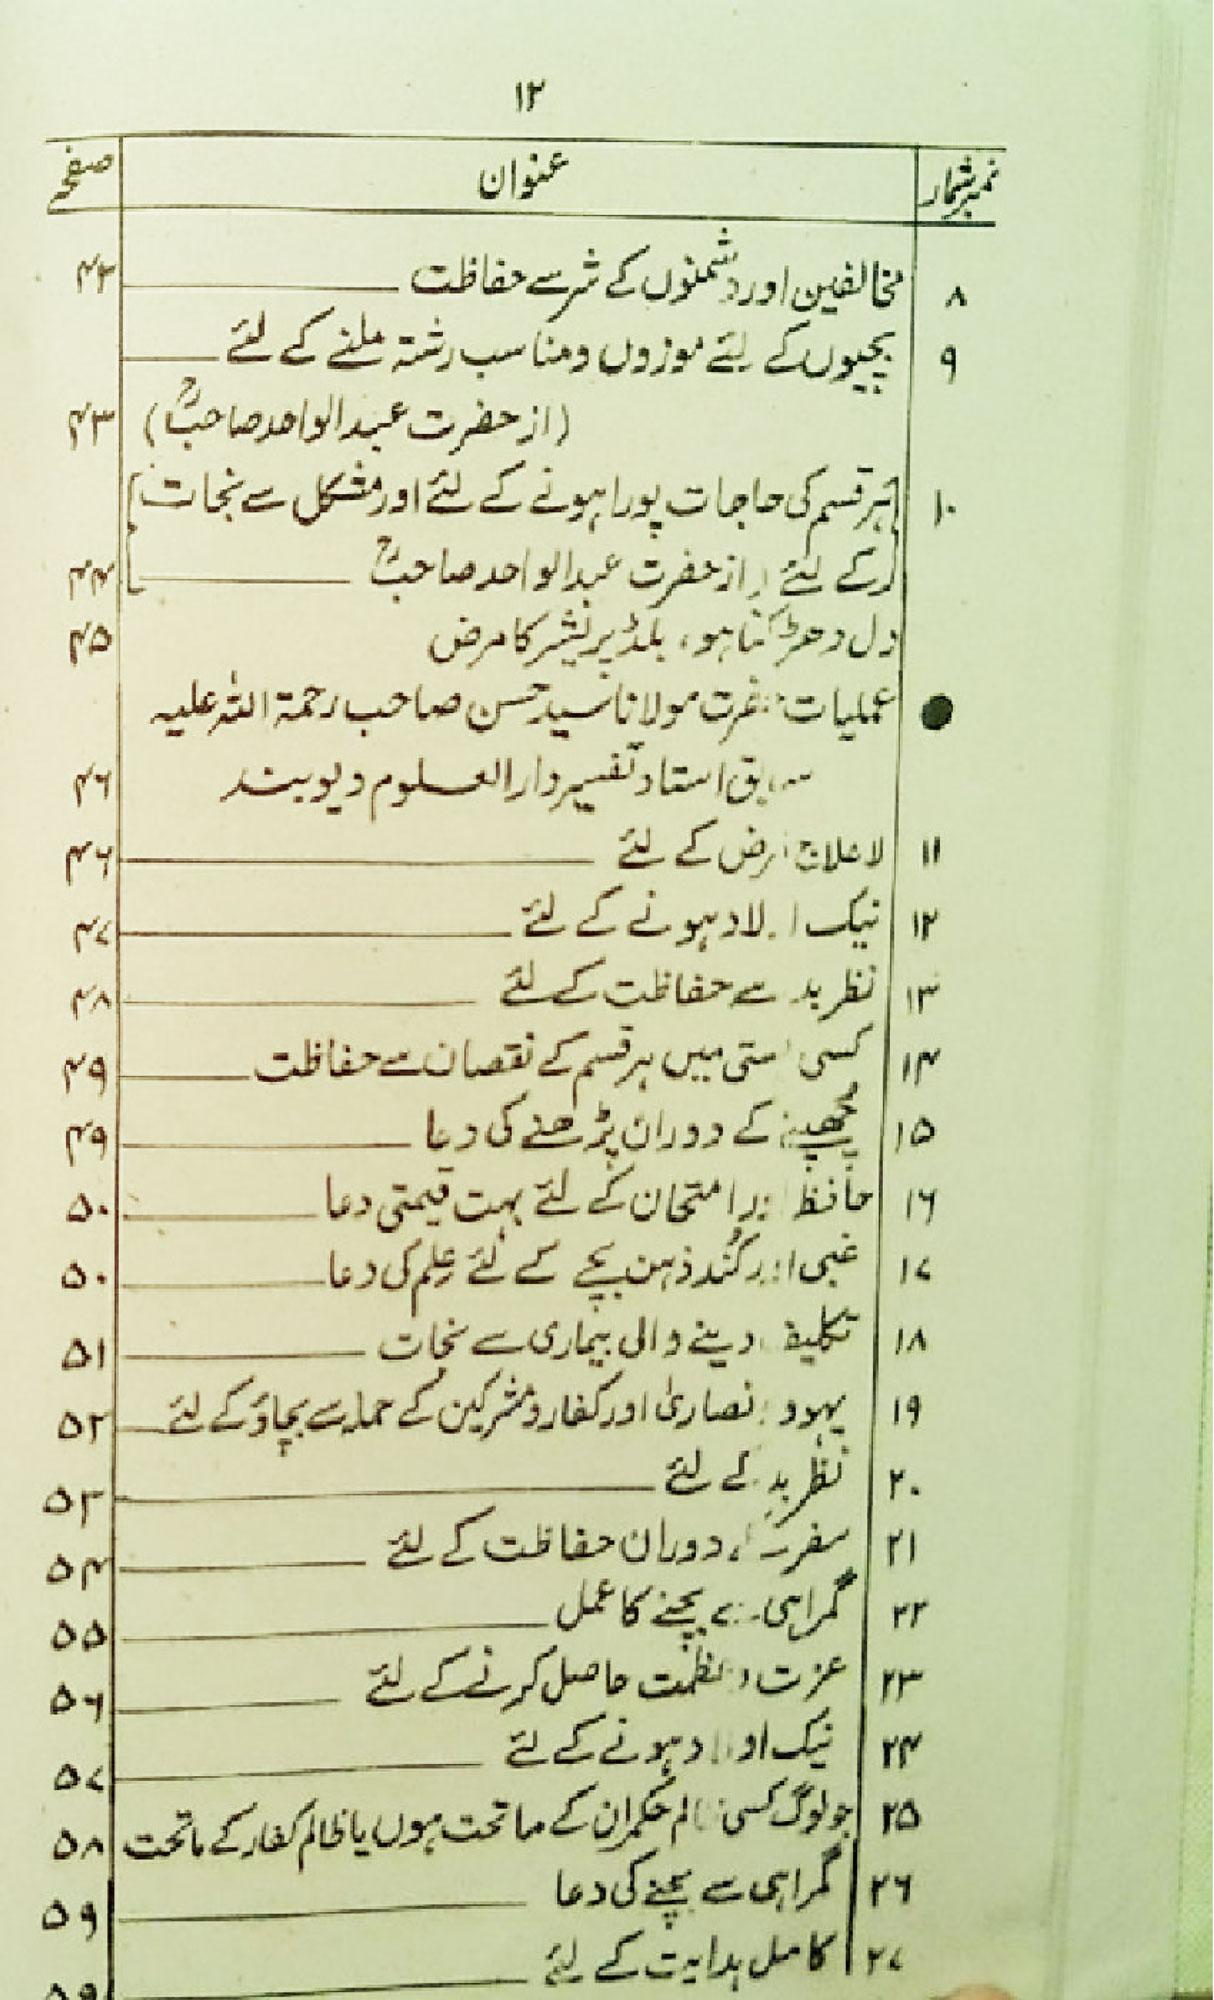 ۱۲
نمبر شمار عنوان صفحہ
۸ مخالفین اور دشمنوں کے شر سے حفاظت ۴۲
۹ بچیوں کے لئے موزوں و مناسب رشتہ ملنے کے لئے
(از حضرت عبدالواحد صاحبؒ) ۴۳
۱۰ ہر قسم کی حاجات پورا ہونے کے لئے اور مشکل سے نجات
کے لئے (از حضرت عبدالواحد صاحبؒ ۴۴
دل دھڑکتا ہو، بلڈ پریشر کا مرض ۴۵
● عملیات حضرت مولانا سید حسن صاحب رحمۃ اللہ علیہ
سابق استاد تفسیر دارالعلوم دیوبند ۴۶
۱۱ لاعلاج مرض کے لئے ۴۶
۱۲ نیک اولاد ہونے کے لئے ۴۷
۱۳ نظر بد سے حفاظت کے لئے ۴۸
۱۴ کسی بستی میں ہر قسم کے نقصان سے حفاظت ۴۹
۱۵ کے دوران پڑھنے کی دعا ۴۹
۱۶ حافظہ اور امتحان کے لئے بہت قیمتی دعا ۵۰
۱۷ غبی اور کُند ذہن بچے کے لئے علم کی دعا ۵۰
۱۸ تکلیف دینے والی بیماری سے نجات ۵۱
۱۹ یہود و نصاریٰ اور کفار و مشرکین کے حملہ سے بچاؤ کے لئے ۵۲
۲۰ نظر بد کے لئے ۵۳
۲۱ سفر کے دوران حفاظت کے لئے ۵۴
۲۲ گمراہی سے بچنے کا عمل ۵۵
۲۳ عزت و عظمت حاصل کرنے کے لئے ۵۶
۲۴ نیک اولاد ہونے کے لئے ۵۷
۲۵ جو لوگ کسی ظالم حکمران کے ماتحت ہوں یا ظالم کفار کے ماتحت ۵۸
۲۶ گمراہی سے بچنے کی دعا ۵۹
۲۷ کامل ہدایت کے لئے ۵۹